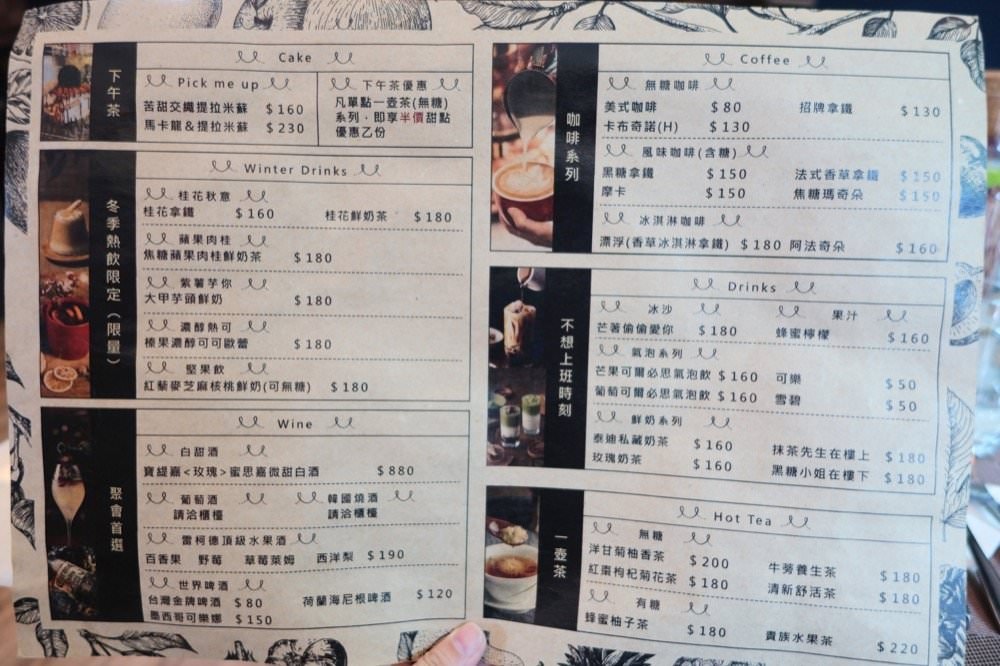 下午茶
Cake
Pick me up
苦甜交織提拉米蘇 $160
馬卡龍&提拉米蘇 $230
下午茶優惠
凡單點一壺茶(無糖)
系列，即享半價甜點
優惠乙份
冬季熱飲限定（限量）
Winter Drinks
桂花秋意
桂花拿鐵 $160 桂花鮮奶茶 $180
蘋果肉桂
焦糖蘋果肉桂鮮奶茶 $180
紫薯芋你
大甲芋頭鮮奶 $180
濃醇熱可
榛果濃醇可可歐蕾 $180
堅果飲
紅藜麥芝麻核桃鮮奶(可無糖) $180
聚會首選
Wine
白甜酒
寶緹嘉<玫瑰>蜜思嘉微甜白酒 $880
葡萄酒 韓國燒酒
請洽櫃檯 請洽櫃檯
雷柯德頂級水果酒
百香果 野莓 草莓萊姆 西洋梨 $190
世界啤酒
台灣金牌啤酒 $80 荷蘭海尼根啤酒 $120
墨西哥可樂娜 $150
咖啡系列
Coffee
無糖咖啡
美式咖啡 $80 招牌拿鐵 $130
卡布奇諾(H) $130
風味咖啡(含糖)
黑糖拿鐵 $150 法式香草拿鐵 $150
摩卡 $150 焦糖瑪奇朵 $150
冰淇淋咖啡
漂浮(香草冰淇淋拿鐵) $180 阿法奇朵 $160
不想上班時刻
Drinks
冰沙 果汁
芒著偷偷愛你 $180 蜂蜜檸檬 $160
氣泡系列
芒果可爾必思氣泡飲 $160 可樂 $50
葡萄可爾必思氣泡飲 $160 雪碧 $50
鮮奶系列
泰迪私藏奶茶 $160 抹茶先生在樓上 $180
玫瑰奶茶 $160 黑糖小姐在樓下 $180
一壺茶
Hot Tea
無糖
洋甘菊柚香茶 $200 牛蒡養生茶 $180
紅棗枸杞菊花茶 $180 清新舒活茶 $180
有糖
蜂蜜柚子茶 $180 貴族水果茶 $220